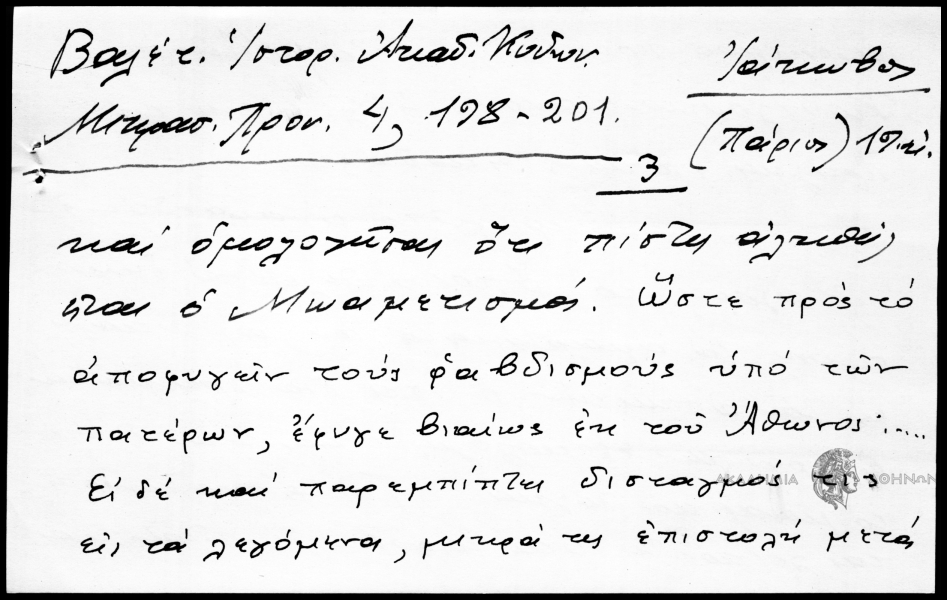 Βαλέτ. Ἱστορ. Ἀκαδ. Κυδων.
Μικρασ. Χρον. 4, 198-201.
Ἰάκωβος
(Πάριος) 19. αἰ.
3
καί ὁμολογῆσαι ὅτι πίστις ἀληθής
εἶναι ὁ Μωαμετισμός. Ὥστε πρὸς τὸ
ἀποφυγεῖν τούς ῥαβδισμούς ὑπό τῶν
πατέρων, ἔφυγε βιαίως ἐκ τοῦ Ἄθωνος.....
Εἰ δέ καί παρεμπίπτει δισταγμός τις
εἰς τά λεγόμενα, μικρά τις ἐπιστολή μετά
ΑΚΑΔΗΜΙΑ ΑΘΗΝΩΝ